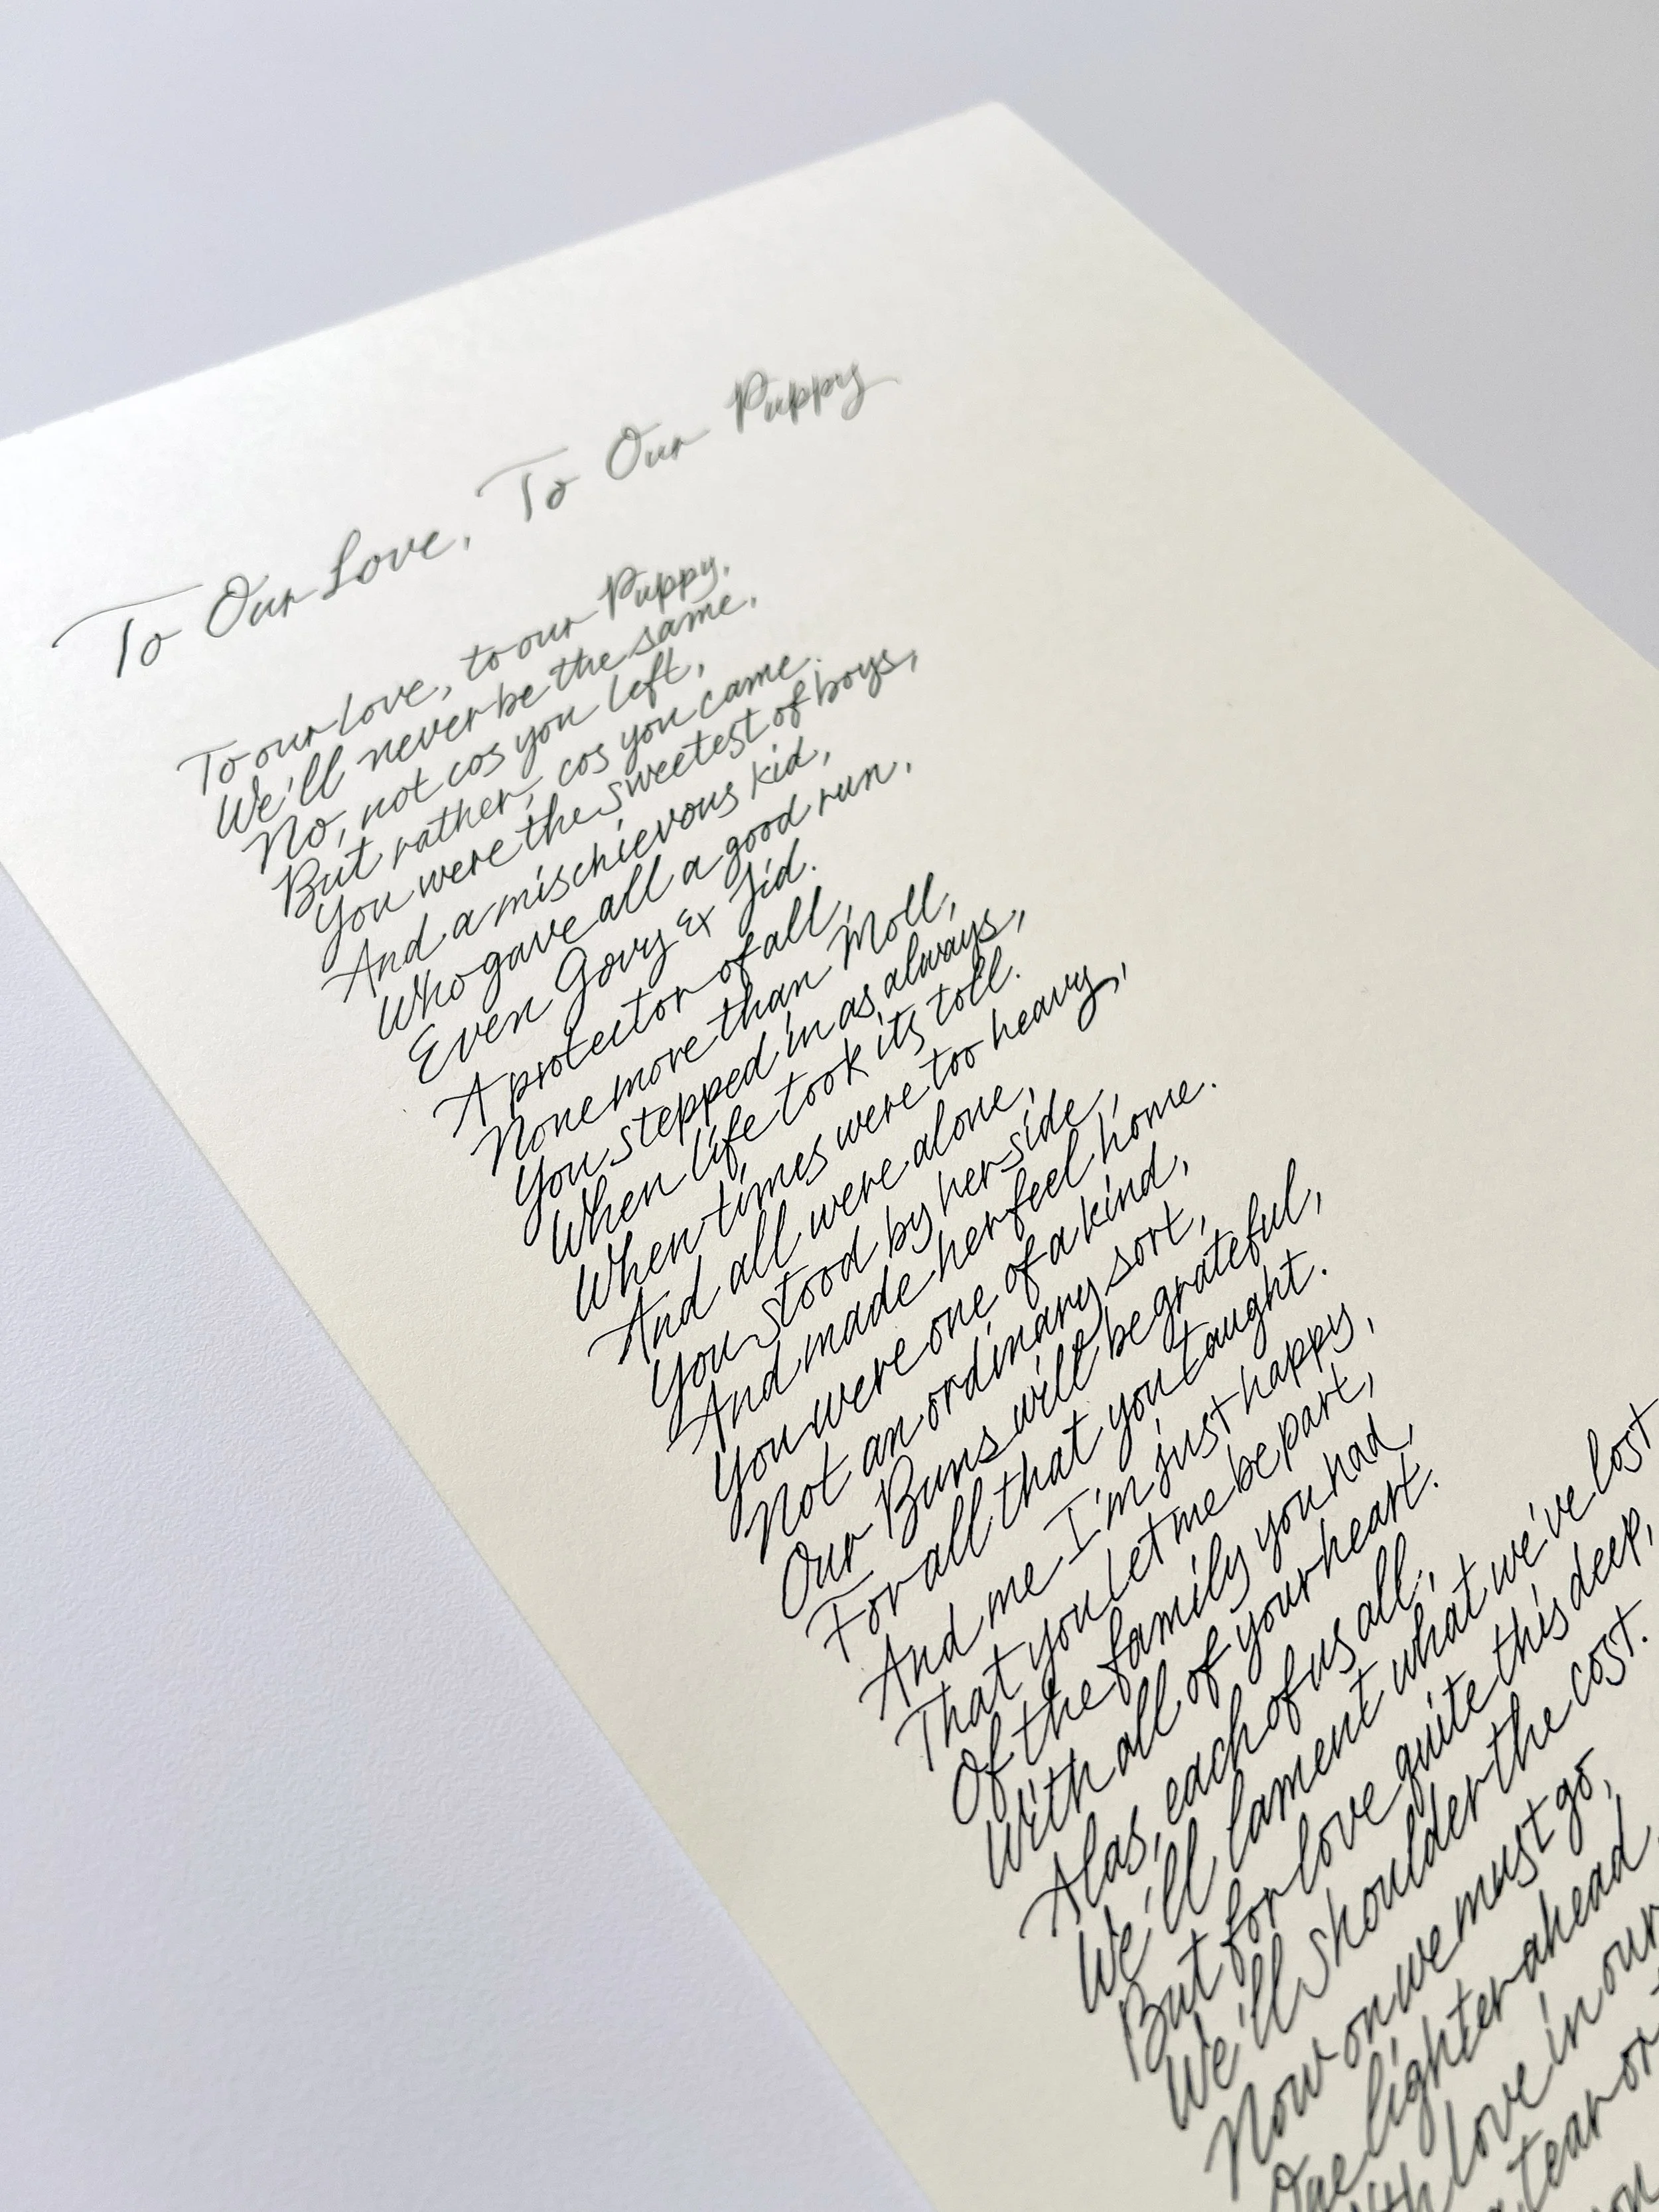 To Our Love, To Our Puppy
To our love, to our Puppy,
We'll never be the same,
No, not cos you left,
But rather, cos you came.
You were the sweetest of boys,
And a mischievous kid,
Who gave all a good run,
Even Govy & Sid.
A protector of all,
None more than Moll,
You stepped in as always,
When life took its toll.
When times were too heavy,
And all were alone,
You stood by her side,
And made her feel home.
You were one of a kind,
Not an ordinary sort,
Our Buns will be grateful,
For all that you taught.
And me I'm just happy,
That you let me be part,
Of the family you had,
With all of your heart.
Alas, each of us all,
We'll lament what we've lost
But for love quite this deep,
We'll shoulder the cost.
Now on we must go,
One lighter ahead
love in our
tear or